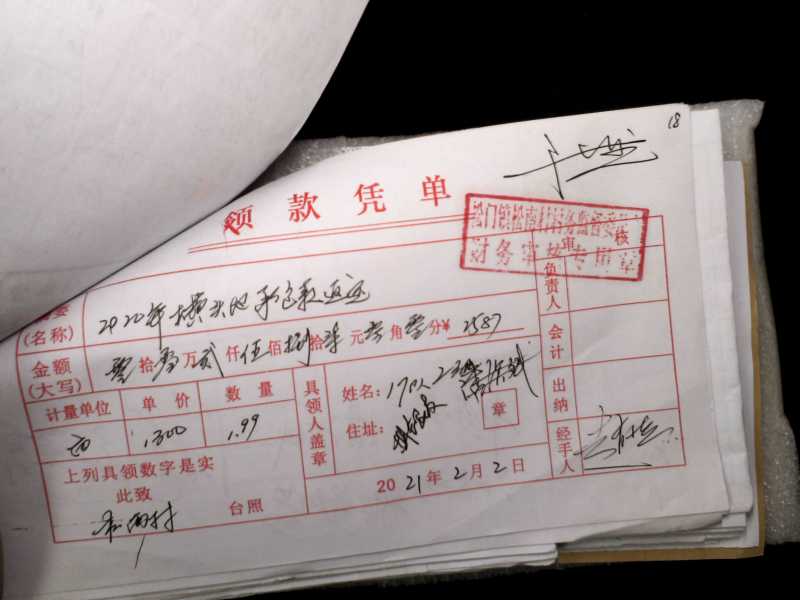 18
领款凭单
松门镇松南村村务监督委
财务审核专用章
(名称)
2020年横大地承包款返还
金额
(大写)
零拾零万贰仟伍佰捌拾柒元零角零分¥2587
计量单位 单价 数量
亩 1300 1.99
具领人盖章
姓名:
住址:
章
负责人
会计
出纳
经手人
上列具领数字是实
此致
松南村 台照
2021年2月2日